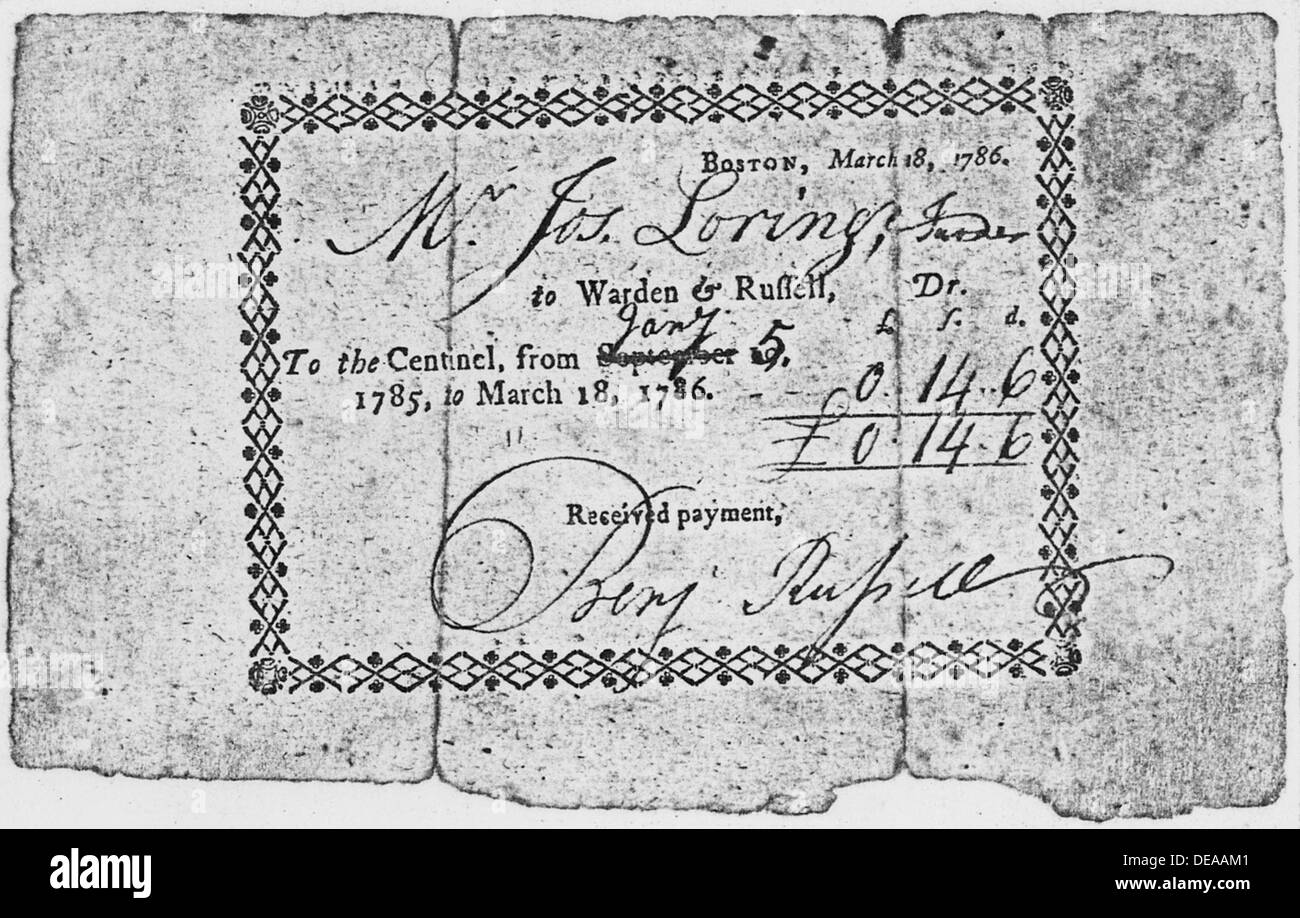 BOSTON, March 18, 1786.
Mr. Jos. Loring,
to Warden & Ruſſell, Dr.
£ s. d.
Jany 5
To the Centinel, from September 19,
1785, to March 18, 1786. 0. 14..6
£ 0. 14.6
Received payment,
Benj Ruſsell
alamy
Image ID: DEAAM1
www.alamy.com